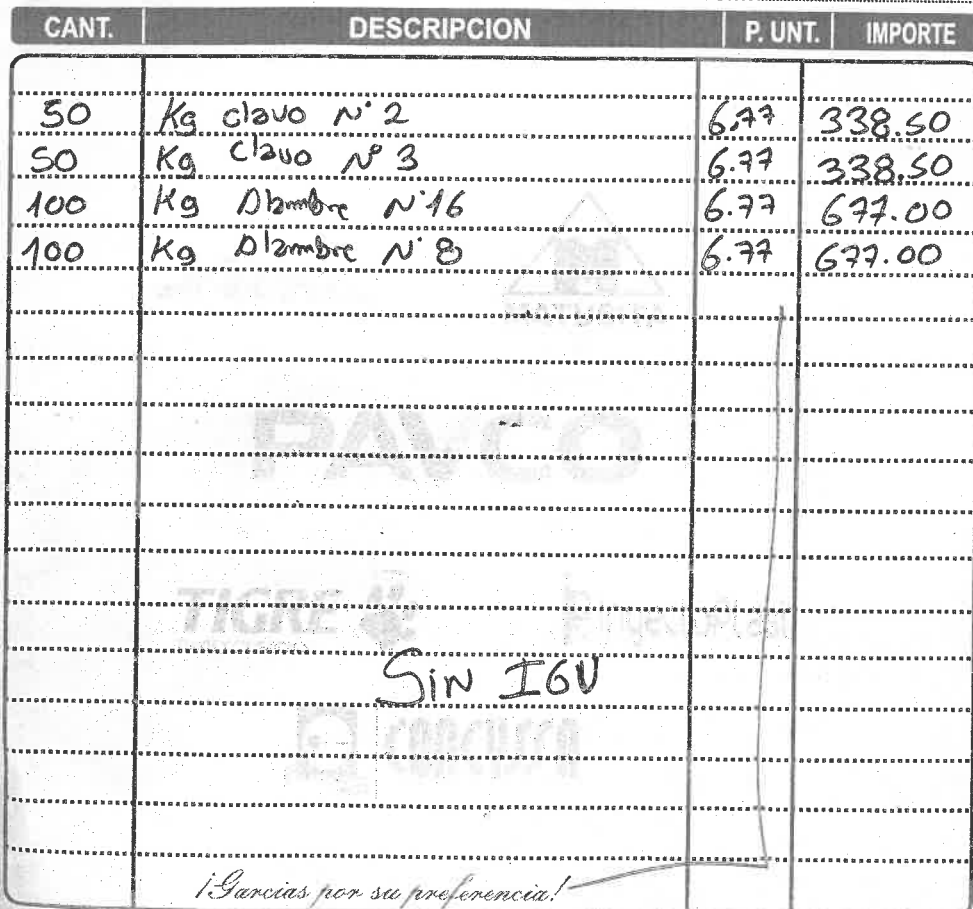 CANT. DESCRIPCION P. UNT. IMPORTE
50 Kg clavo N° 2 6.77 338.50
50 Kg clavo N° 3 6.77 338.50
100 Kg Alambre N° 16 6.77 677.00
100 Kg Alambre N° 8 6.77 677.00
PAVCO
TIGRE
Sin IGV
¡Garcias por su preferencia!